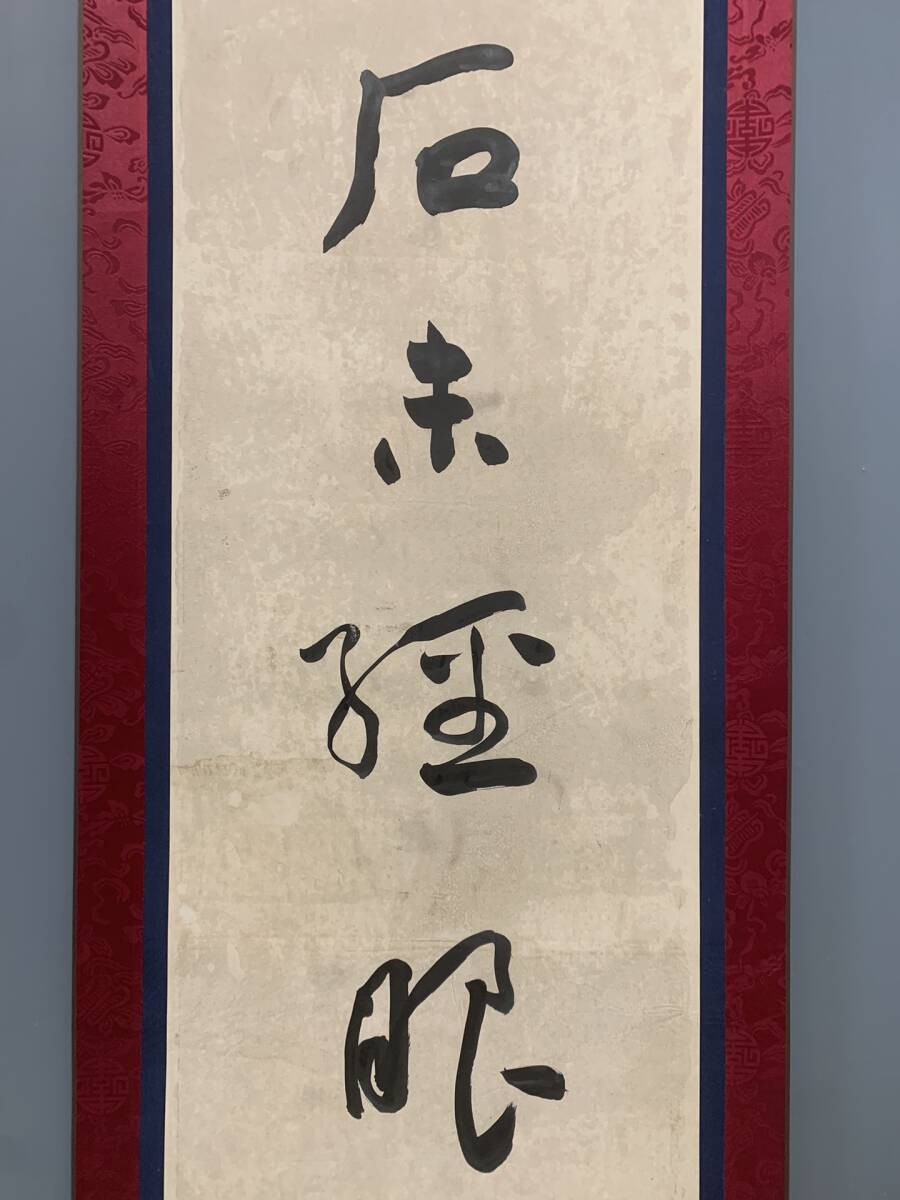 石未經眼